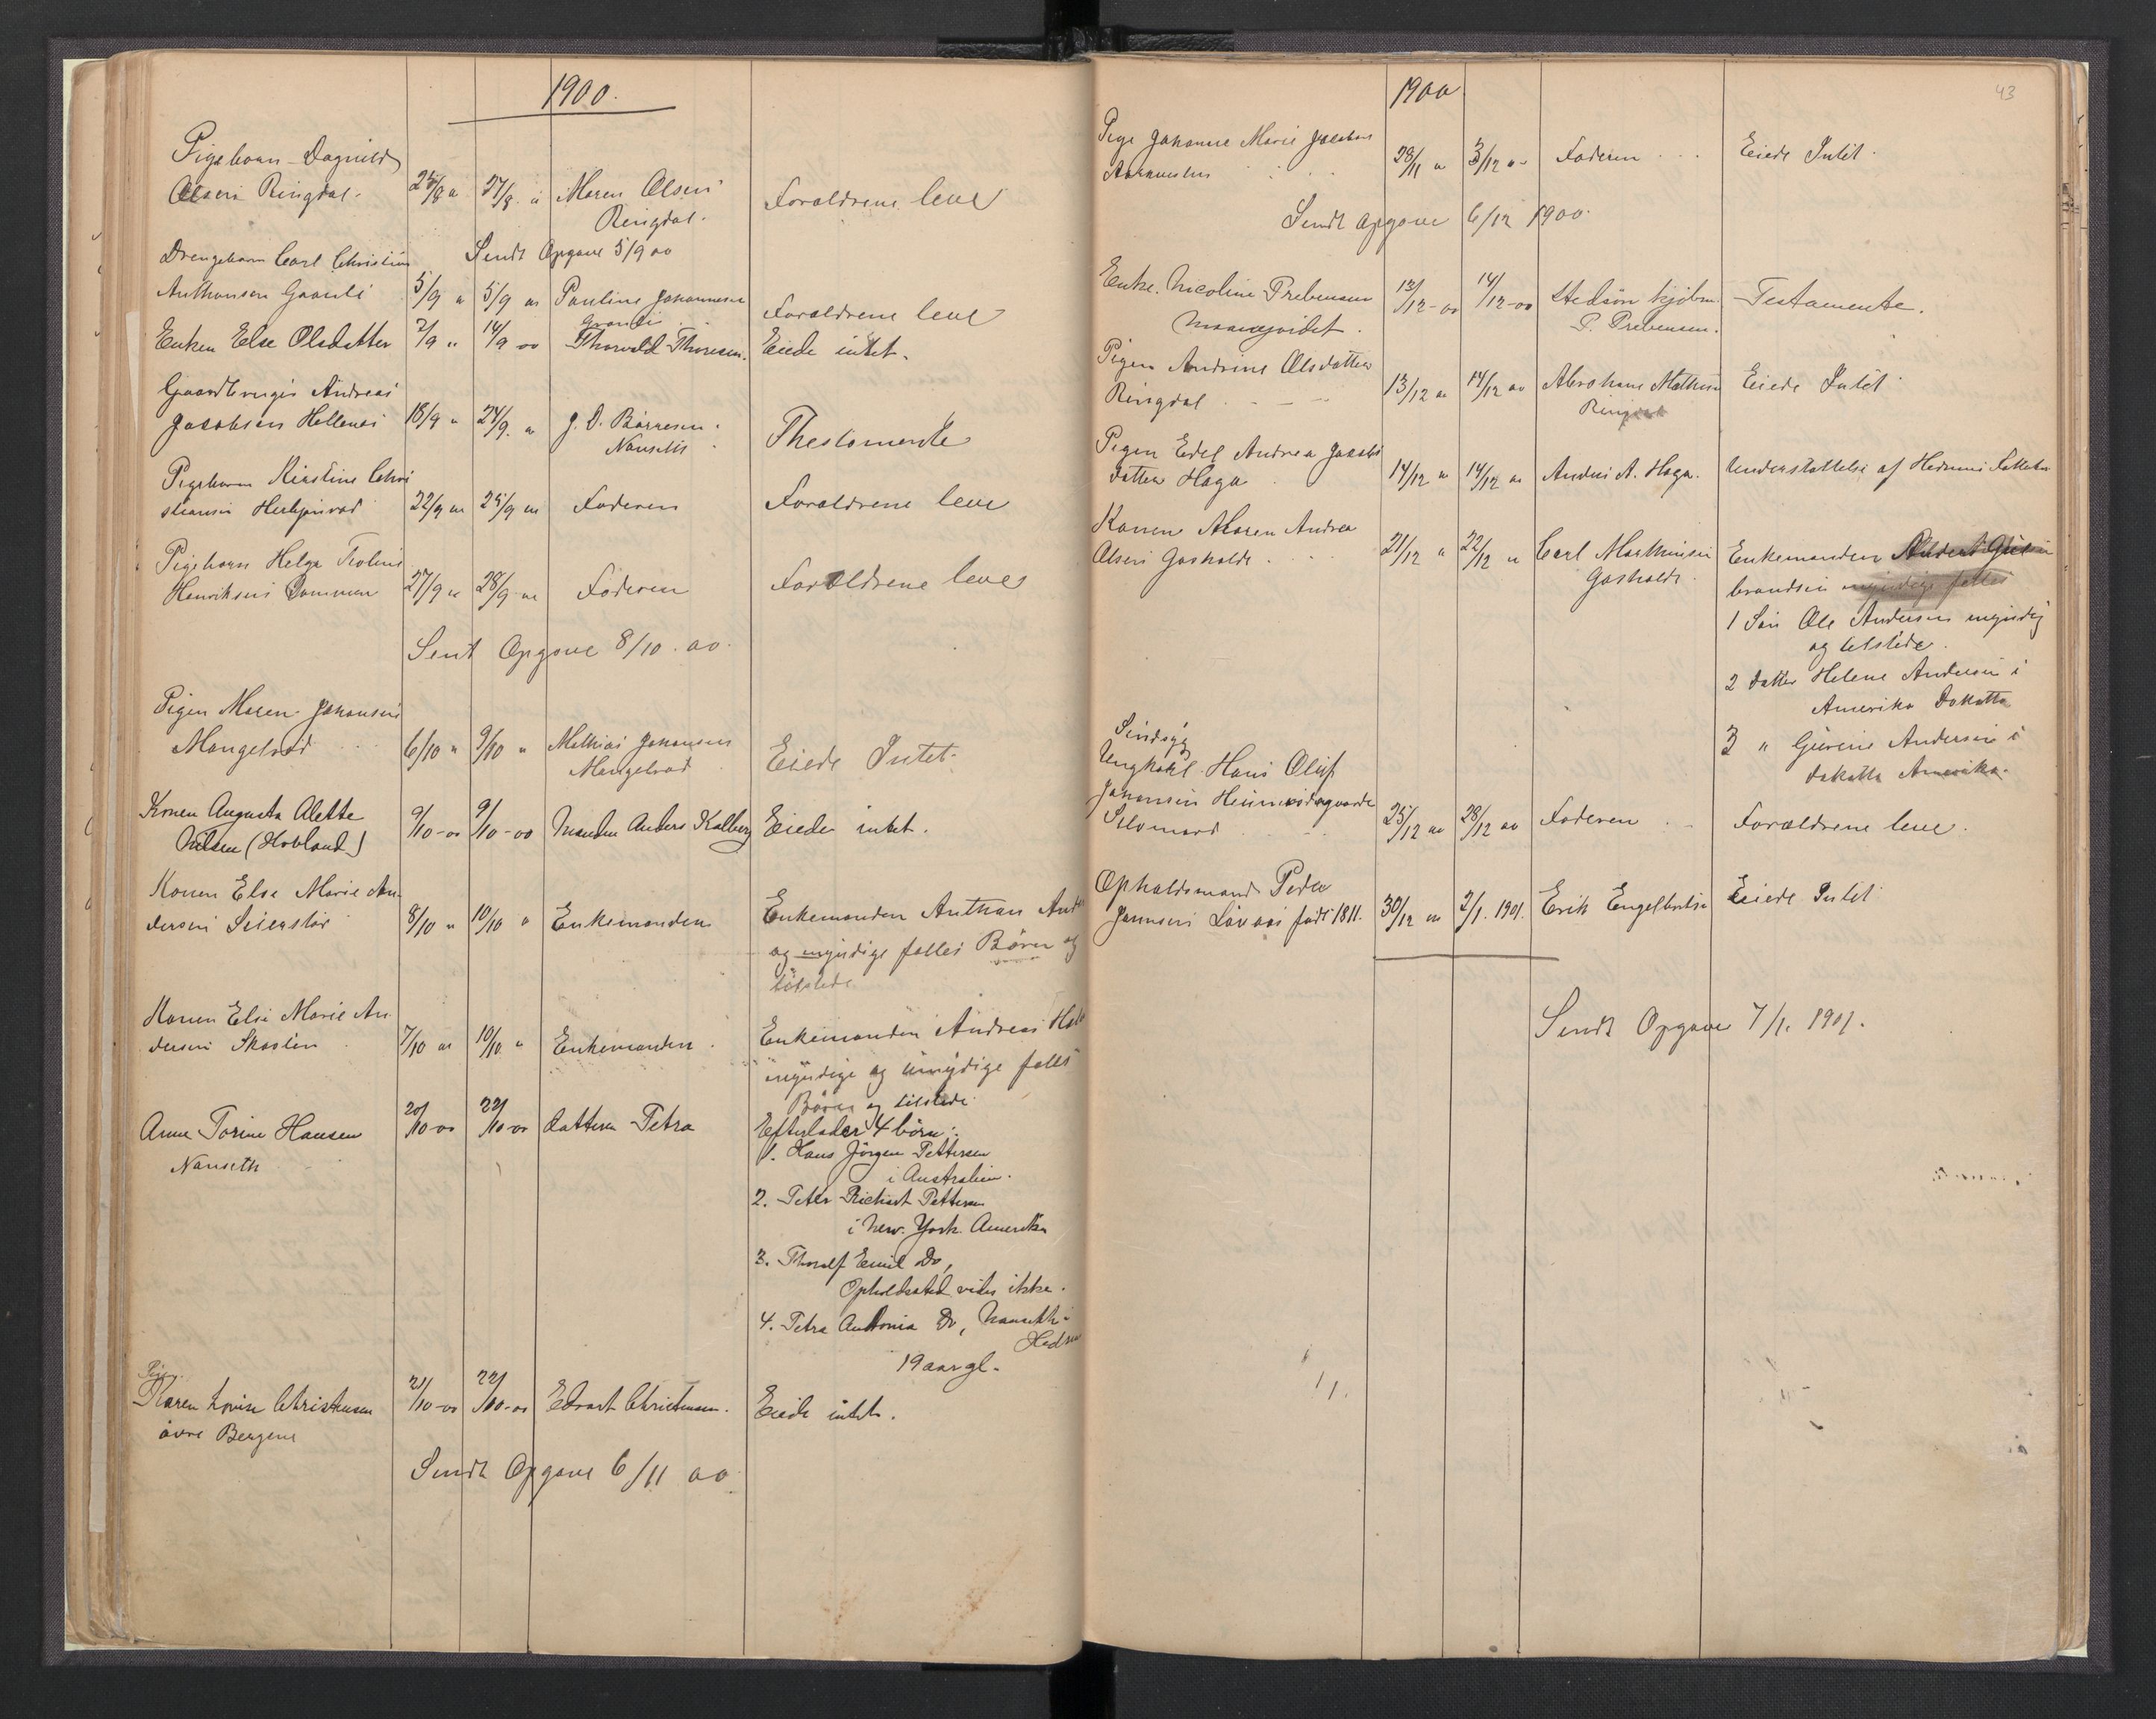 1900.
Pigebarn Dagnild
Olsen Ringdal. 25/8 00 27/8 00 Maren Olsen Foraldrene leve
Ringdal.
Drengebarn Carl Christian Sendt Opgave 5/9 00
Anthonsen Grønli 5/9 00 5/9 00 Pauline Johannesen Foraldrene leve
Grønli
Enken Else Olsdatter 2/9 " 14/9 00 Thorvald Thoresen. Eiede intet.
Gaardbruger Andreas
Jacobsen Hellenes 18/9 " 24/9 00 J. D. Børresen. Thestamente
Nanseth
Pigebarn Kirstine Chri
stiansen 22/9 00 25/9 00 Faderen Foraldrene leve
Pigebarn Helga
Henriksen Dammen 27/9 00 28/9 00 Faderen Foraldrene leve
Sent Opgave 8/10. 00.
Pigen Maren Johansen
Mangelrød 6/10 " 9/10 " Mathias Johansen Eiede Intet.
Mangelrød
Konen Augusta Alette 9/10-00 9/10-00 Manden Anders Kalberg Eiede intet.
Nilsen (Hobland)
Konen Else Marie An-
dersen 8/10 " 10/10 " Enkemanden Enkemanden Anthon
og myndige falles Børn og
tilstede
Konen Else Marie An
dersen Skaslien 7/10 00 10/10 " Enkemanden. Enkemanden Andreas
myndige og umydige falles
Børn og tilstede
Anne Torine Hansen 20/10-00 22/10-00 datteren Petra Efterlader 4 børn:
Nanseth
1. Hans Jörgen Pettersen
i Australien.
2. Peter Richart Pettersen
i New. York. Amerika
3. Thoralf Emil Do,
Opholdssted vides ikke.
4. Petra Antonia Do, Nanseth i
Hedrum
19 aar gl.
Pigen
Karen Lovise Christensen 21/10-00 22/10-00 Edvart Christensen. Eiede intet.
øvre Bergene
Sendt Opgave 6/11 00
43
1900
Pige Johanne Marie Jacobsen 28/11 00 3/12 00 Faderen Eiede Intet.
Sendt Opgave 6/12 1900.
Enke. Nicoline Prebensen 12/12-00 14/12-00 Stedsön kjöbm. Testamente.
P. Prebensen.
Pigen Andrine Olsdatter
Ringdal 13/12 00 14/12 00 Abraham Mathisen Eiede Intet
Ringdal
Pigen Edel Andrea Jacobs
datter Haga 14/12 " 14/12 00 Anders A. Haga. Understøttelse af Hedrums
Konen Maren Andrea
Olsen Gasholdt 21/12 " 22/12 " Carl Marthinsen Enkemanden
Gasholdt
brandsen myndige falles
1 Søn Ole Andersen myndig
og tilstede.
2 datter Helene Andersen i
Amerika Dakatta
3 " Gurine Andersen i
dakatta Amerika.
Sindsyg
Ungkarl Hans Oluf
Johansen 25/12 00 28/12 00 Faderen Foraldrene leve.
Opholdsmand Peder
Jannsen Løvaas født 1811. 30/12 00 2/1. 1901. Erik Engelbretsen Eiede Intet
Sendt Opgave 7/1. 1901.